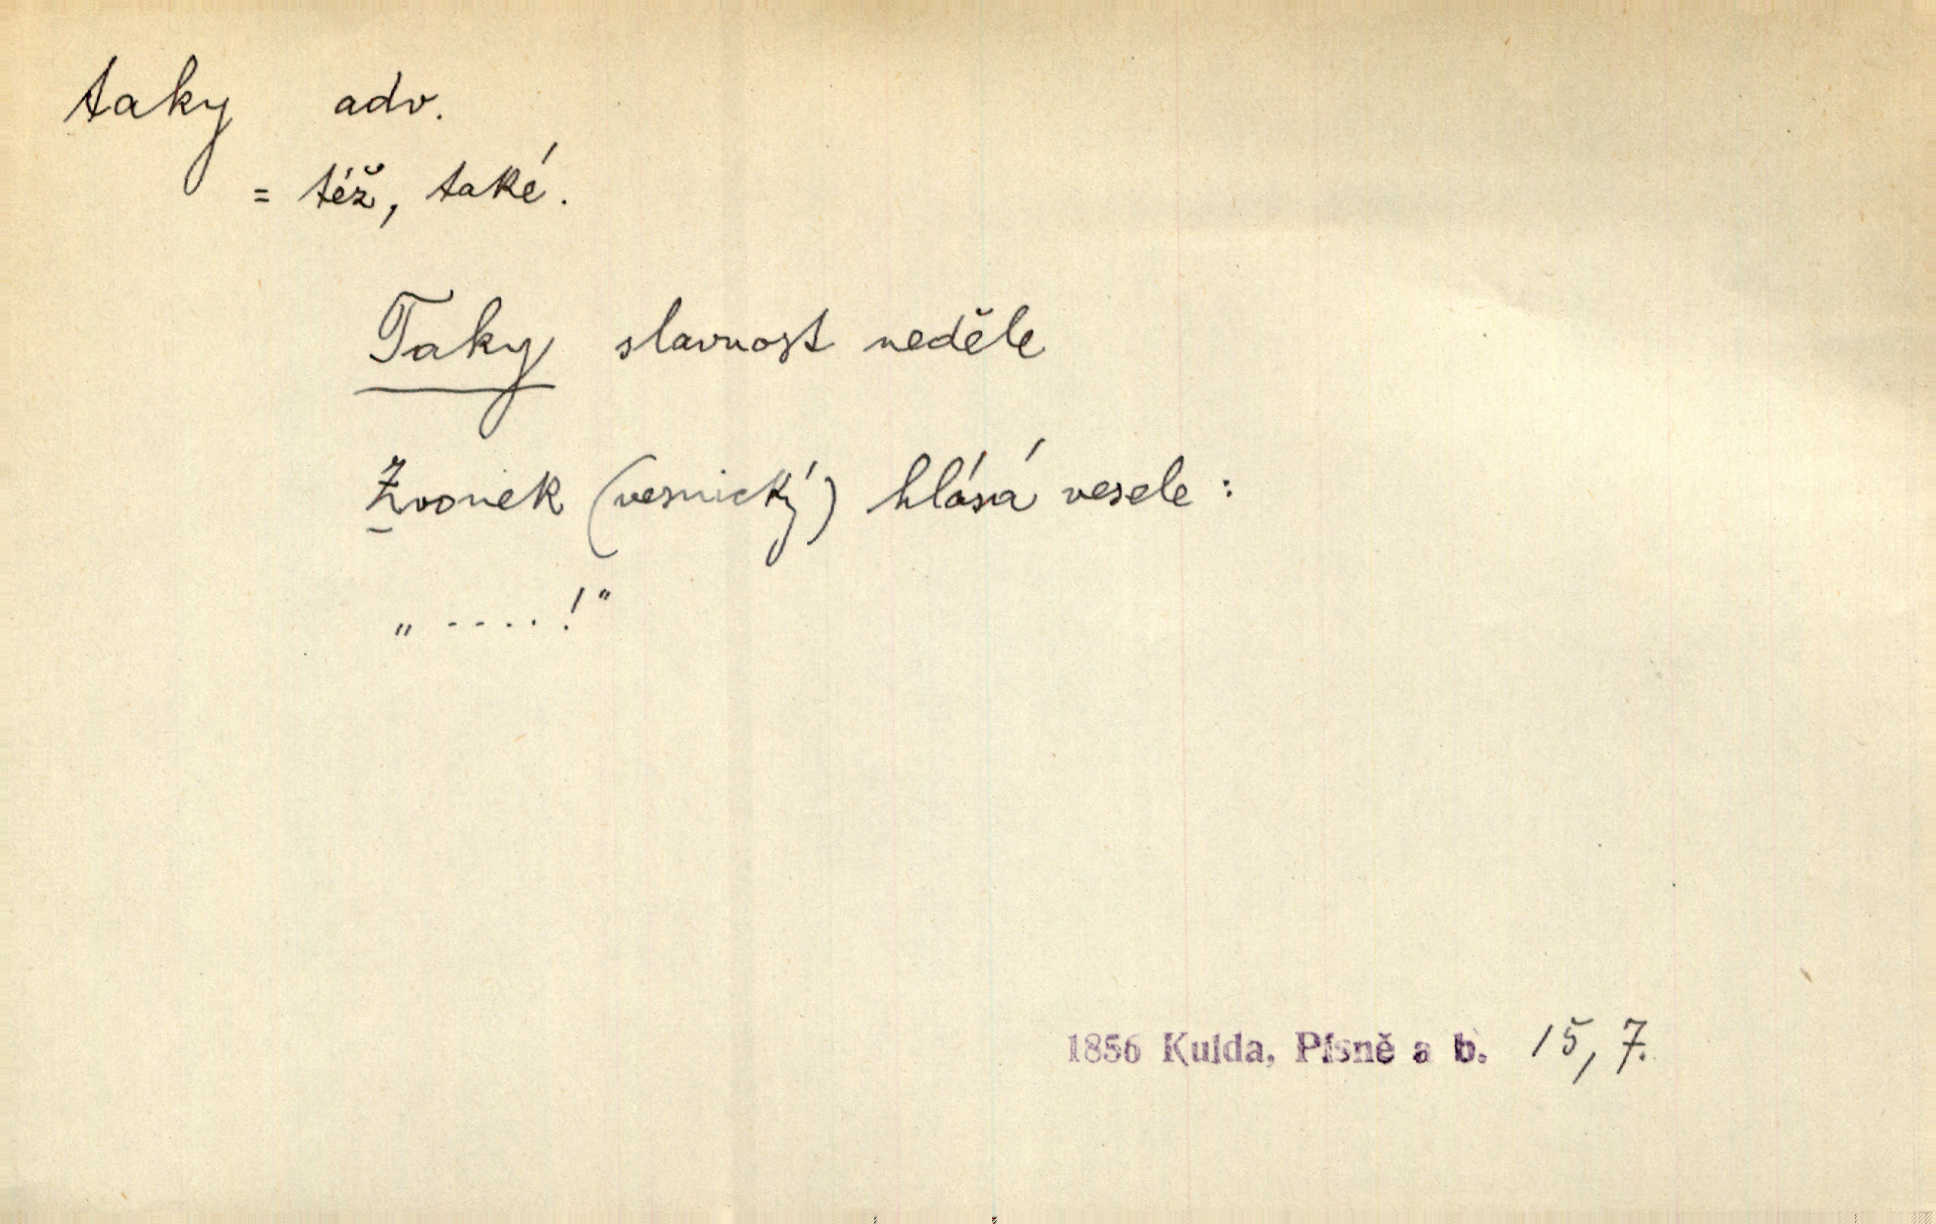 taky adv.
= též, také.
Taky slavnost neděle
Zvonek (vesnický) hlásá vesele:
„ ....!"
1856 Kulda, Písně a b. 15, 7.